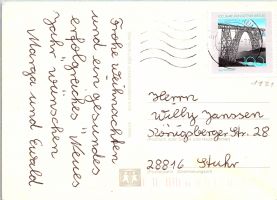 Frohe Weihnachten
und ein gesundes
erfolgreiches Neues
Jahr wünschen
Marga und Ewald.
Herrn
Willy Janssen
Königsberger Str. 28
28816 Stuhr